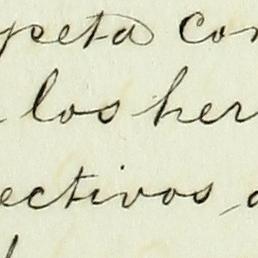 peta con
los her
ectivos